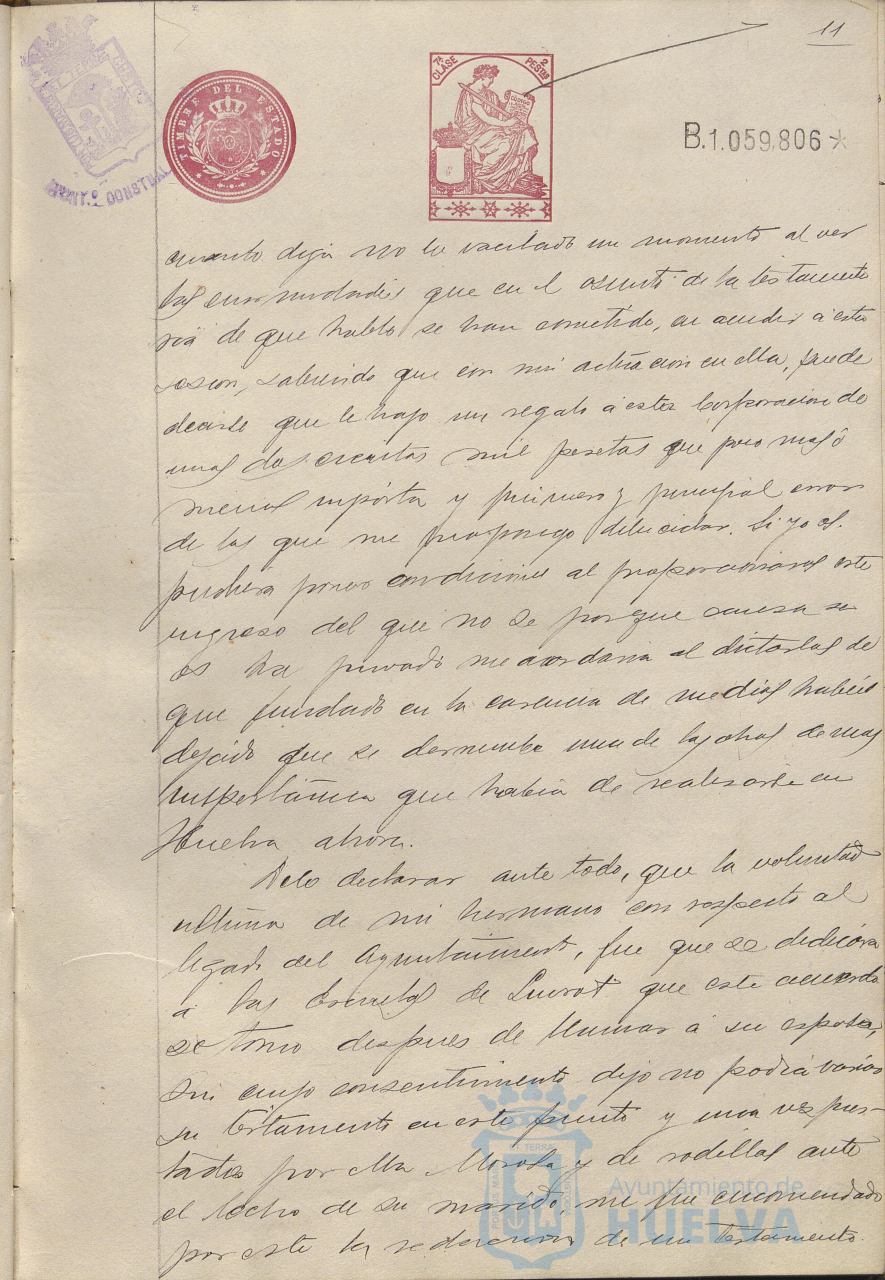 11
TIMBRE DEL ESTADO
7ª CLASE 2 PESTAS
B.1.059.806 *
cuanto dejo no he vacilado un momento al ver
las enormidades que en el asunto de la testamenta
ria de que hablo se han cometido, en acudir á esta
sesion, sabiendo que con mi actuacion en ella, puede
decirse que le hago un regalo á esta Corporacion de
unas doscientas mil pesetas que poco mas ó
menos importa y primero y principal error
de los que me propongo dilucidar. Si yo os
pudiera poner condiciones al proporcionaros este
ingreso del que no se porque causa se
os ha privado me acordaria al dictarlas de
que fundado en la carencia de medios habeis
dejado que se derrumbe una de las obras de mas
importancia que habia de realisarse en
Huelva ahora.
Debo declarar ante todo, que la voluntad
ultima de mi hermano con respecto al
legado del Ayuntamiento, fue que se dedicara
á las Escuelas de que este acuerdo
se tomo despues de llamar á su esposa,
sin cuyo consentimiento dijo no podia variar
su testamento en este punto y una vez pres-
tado por ella y de rodillas ante
el lecho de su marido, me fue encomendado
por este la redaccion de un testamento.
Ayuntamiento de
HUELVA